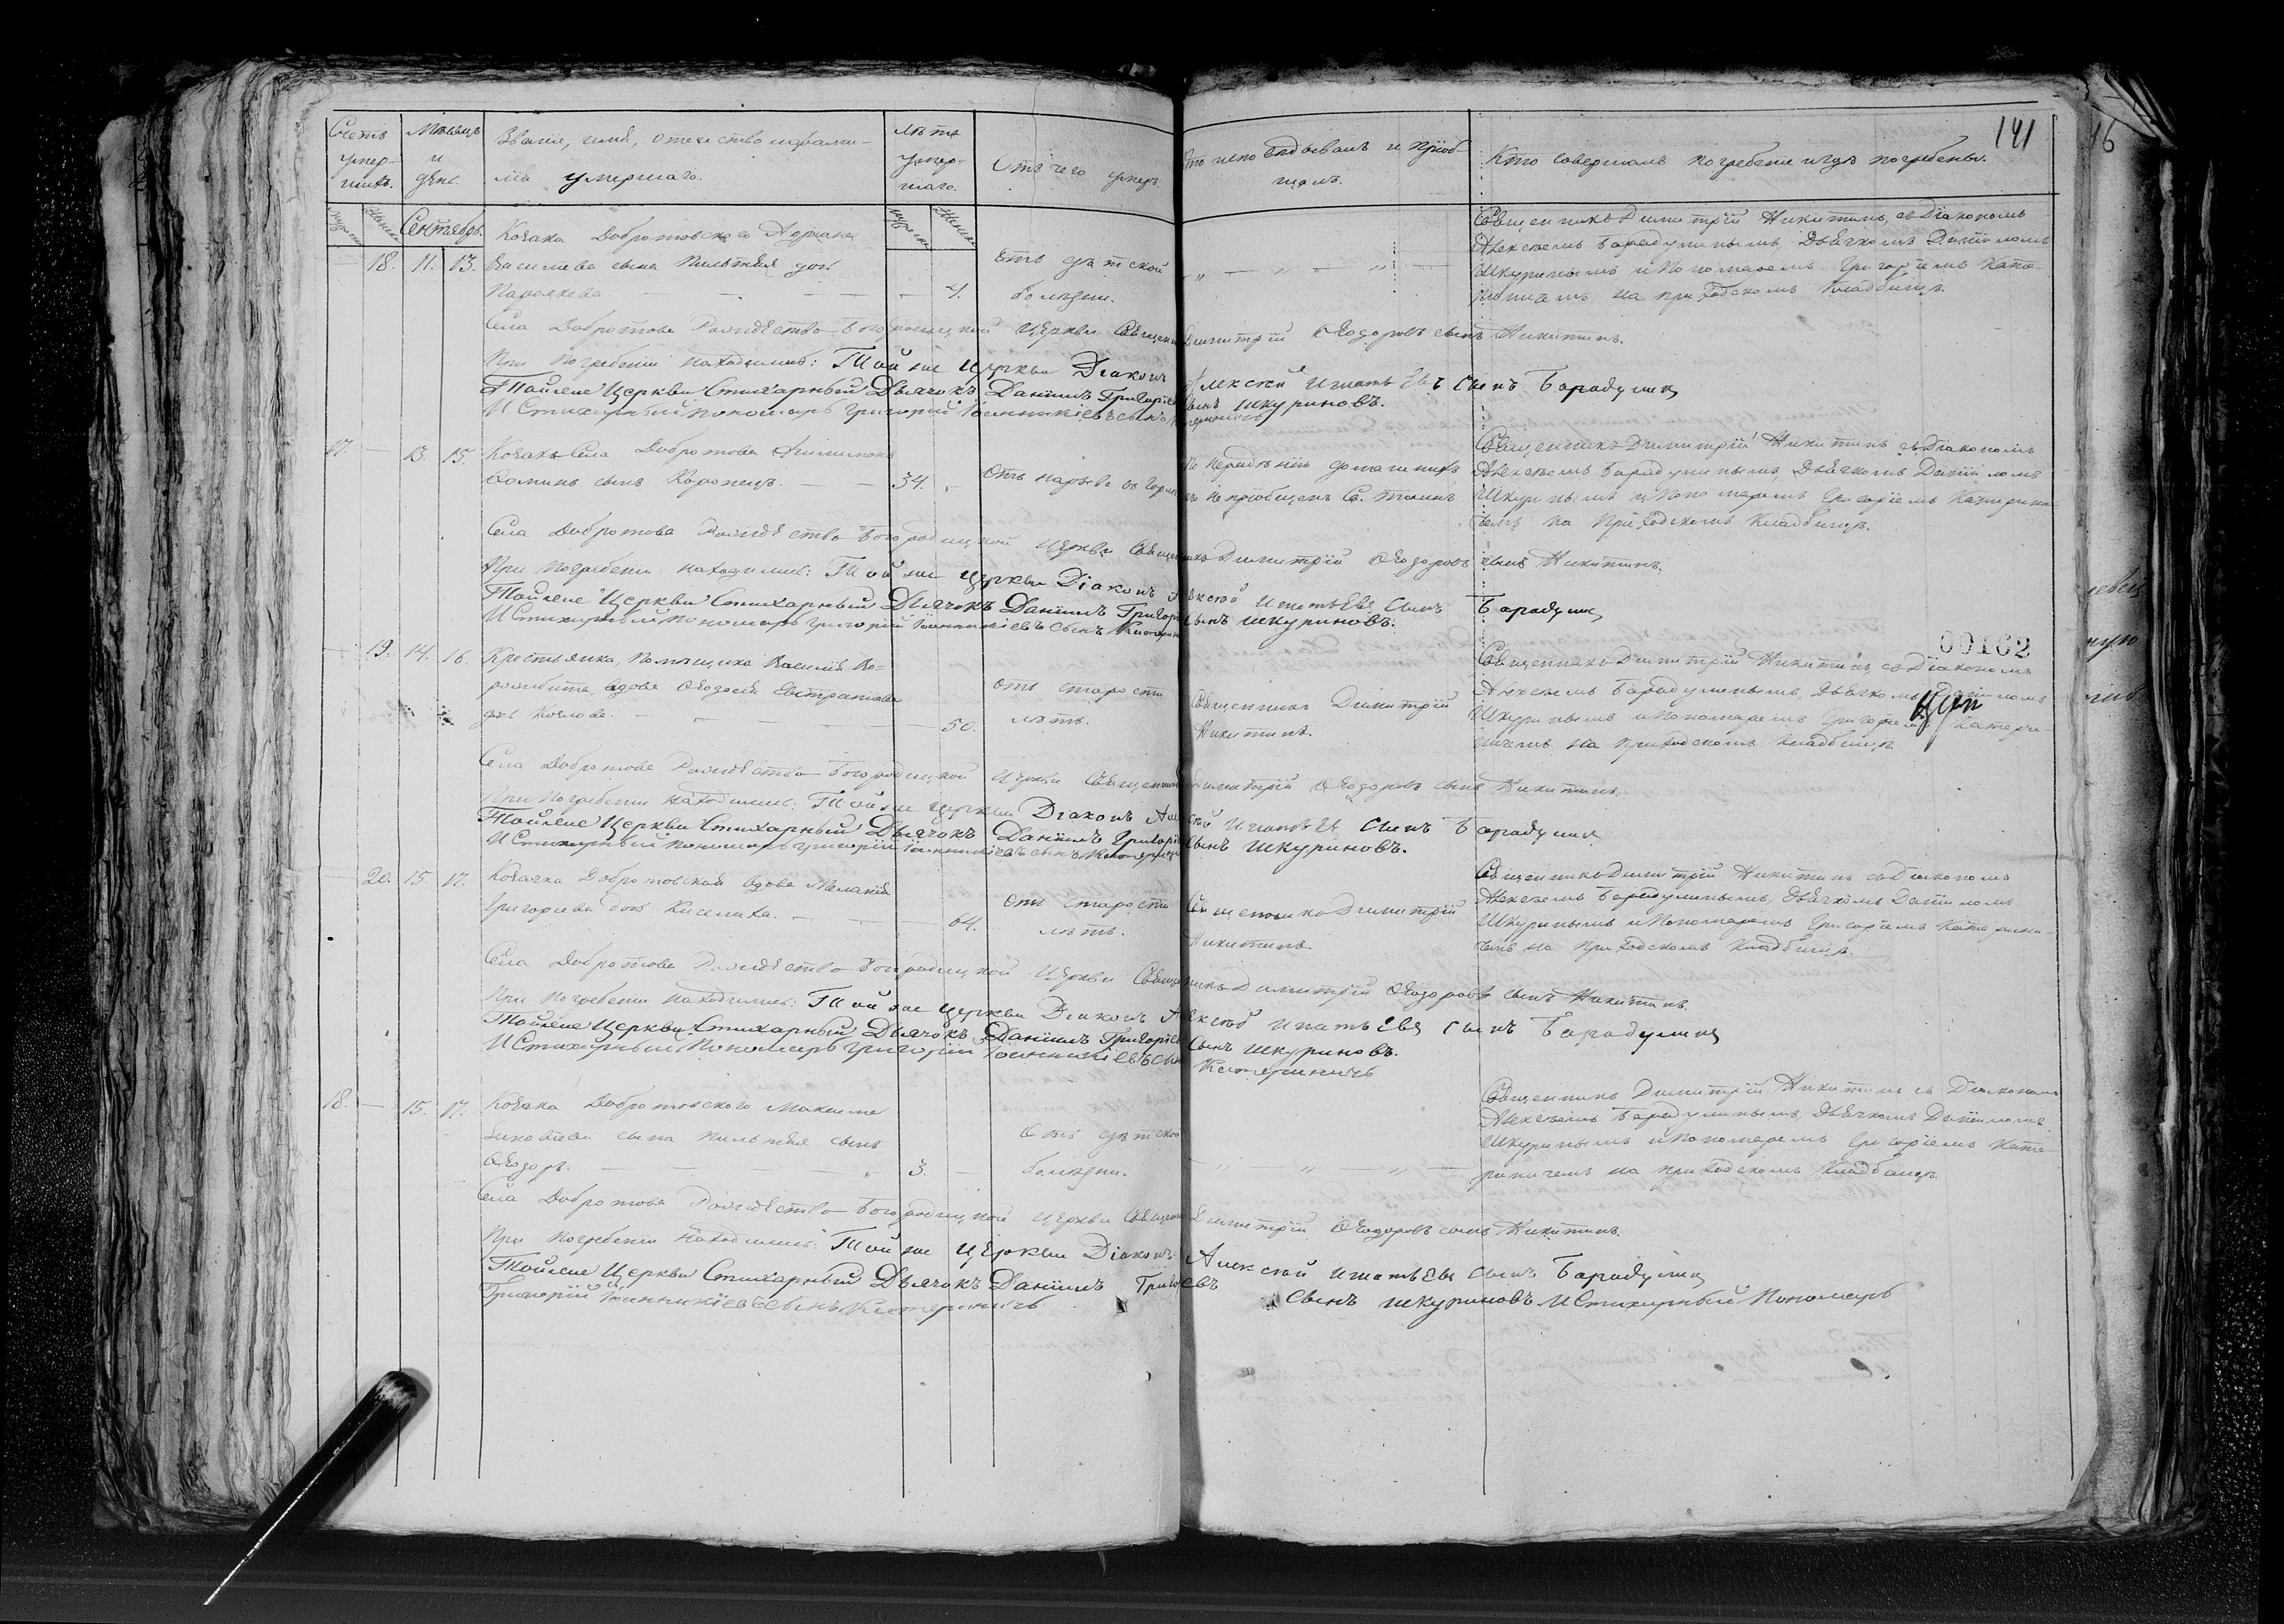 141
Счетъ умер-шихъ.
Мѣсяцъ и день.
Званіе, имя, отечество и фамилія умершаго.
Лѣта умершаго.
Отъ чего умеръ.
Кто исповѣдывалъ и пріобщалъ.
Кто совершалъ погребеніе и гдѣ погребены.
Сентябрь.
Козака Добротовского Адріана
18. 11. 13. Василіева сына дочь
Параскева. 4.
Отъ дѣтской
болѣзни.
Священникъ Димитрій Никитинъ, съ Діакономъ
Алексѣемъ Барадулинымъ, Дьячкомъ Даніиломъ
Шкуриновымъ и Пономаремъ Григоріемъ Кате-
риничемъ на приходскомъ кладбищѣ.
Села Добротова Рождество-Богородицкой Церкви Священникъ Димитрій Ѳеодоровъ сынъ Никитинъ.
При погребеніи находились: Той же Церкви Діаконъ Алексѣй Игнатьевъ сынъ Барадулинъ
Тойже Церкви Стихарный Дьячокъ Даніилъ Григоріевъ сынъ Шкуриновъ.
И Стихарный Пономарь Григорій Іоанникіевъ сынъ Катериничъ
17. 13. 15. Козакъ Села Добротова Филимонъ
Ѳоминъ сынъ Коропецъ. 34.
Отъ нарыва въ горлѣ
По нерадѣнію домашнихъ
не пріобщенъ Св. таинъ
Священникъ Димитрій Никитинъ съ Діакономъ
Алексѣемъ Барадулинымъ, Дьячкомъ Даніиломъ
Шкуриновымъ и Пономаремъ Григоріемъ Катерини-
чемъ на приходскомъ кладбищѣ.
Села Добротова Рождество-Богородицкой Церкви Священникъ Димитрій Ѳеодоровъ сынъ Никитинъ.
При погребеніи находились: Той же Церкви Діаконъ Алексѣй Игнатьевъ сынъ Барадулинъ
Тойже Церкви Стихарный Дьячокъ Даніилъ Григоріевъ сынъ Шкуриновъ.
И Стихарный Пономарь Григорій Іоанникіевъ сынъ Катериничъ
00162
19. 14. 16. Крестьянка, помѣщика Василія
вдова Ѳеодосія Евстратіева
дочь Козлова. 50.
Отъ старости
лѣтъ.
Священникъ Димитрій
Никитинъ.
Священникъ Димитрій Никитинъ, съ Діакономъ
Алексѣемъ Барадулинымъ, Дьячкомъ Даніиломъ
Шкуриновымъ и Пономаремъ Григоріемъ Катери-
ничемъ на приходскомъ кладбищѣ.
Села Добротова Рождество-Богородицкой Церкви Священникъ Димитрій Ѳеодоровъ сынъ Никитинъ.
При погребеніи находились: Той же Церкви Діаконъ Алексѣй Игнатьевъ сынъ Барадулинъ
Тойже Церкви Стихарный Дьячокъ Даніилъ Григоріевъ сынъ Шкуриновъ.
И Стихарный Пономарь Григорій Іоанникіевъ сынъ Катериничъ
20. 15. 17. Козачка Добротовская вдова Меланія
Григорьева дочь Киселиха. 64.
Отъ старости
лѣтъ.
Священникъ Димитрій
Никитинъ.
Священникъ Димитрій Никитинъ съ Діакономъ
Алексѣемъ Барадулинымъ, Дьячкомъ Даніиломъ
Шкуриновымъ и Пономаремъ Григоріемъ Катерини-
чемъ на приходскомъ кладбищѣ.
Села Добротова Рождество-Богородицкой Церкви Священникъ Димитрій Ѳеодоровъ сынъ Никитинъ.
При погребеніи находились: Той же Церкви Діаконъ Алексѣй Игнатьевъ сынъ Барадулинъ
Тойже Церкви Стихарный Дьячокъ Даніилъ Григоріевъ сынъ Шкуриновъ.
И Стихарный Пономарь Григорій Іоанникіевъ сынъ Катериничъ
18. 15. 17. Козака Добротовского Максима
сына сынъ
Ѳеодоръ. 3.
Отъ дѣтской
болѣзни.
Священникъ Димитрій Никитинъ съ Діакономъ
Алексѣемъ Барадулинымъ, Дьячкомъ Даніиломъ
Шкуриновымъ и Пономаремъ Григоріемъ Кате-
риничемъ на приходскомъ кладбищѣ.
Села Добротова Рождество-Богородицкой Церкви Священникъ Димитрій Ѳеодоровъ сынъ Никитинъ.
При погребеніи находились: Той же Церкви Діаконъ Алексѣй Игнатьевъ сынъ Барадулинъ
Тойже Церкви Стихарный Дьячокъ Даніилъ Григоріевъ
сынъ Шкуриновъ И Стихарный Пономарь
Григорій Іоанникіевъ сынъ Катериничъ